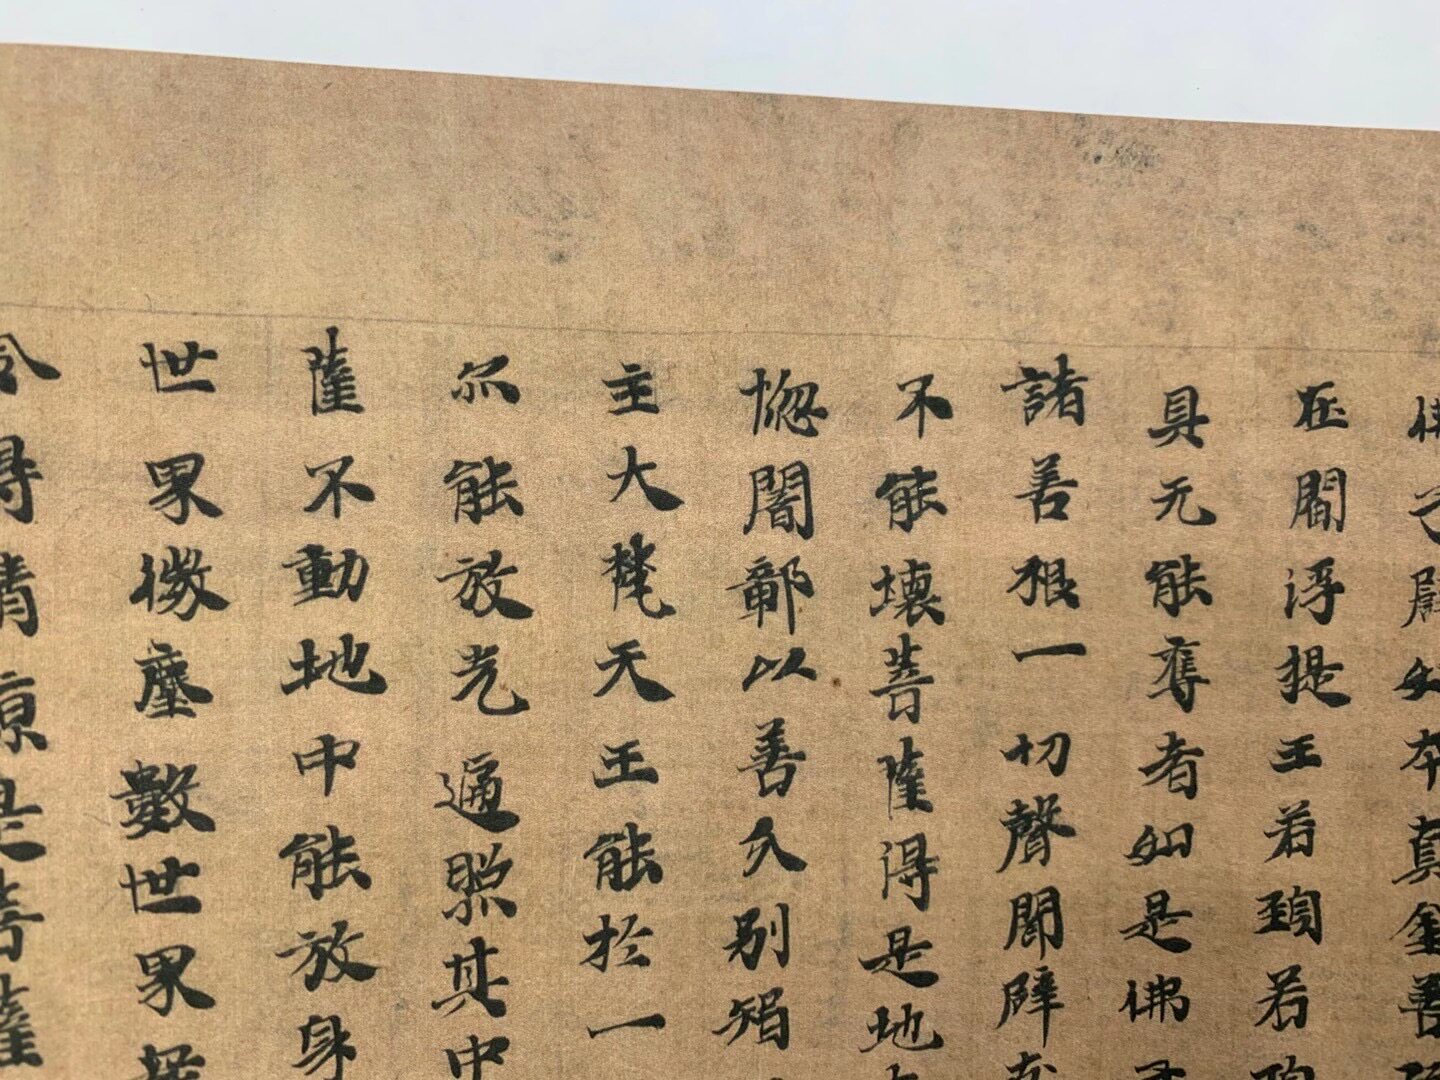 佛子譬如本真金善
在閻浮提王若
具无能奪者如是佛
諸善根一切聲聞辟支
不能壞菩薩得是地
惚闇鄣以善分別智
主大梵天王能於一
尒能放光遍照其中
薩不動地中能放身
世界微塵數世界
令得清涼是菩薩